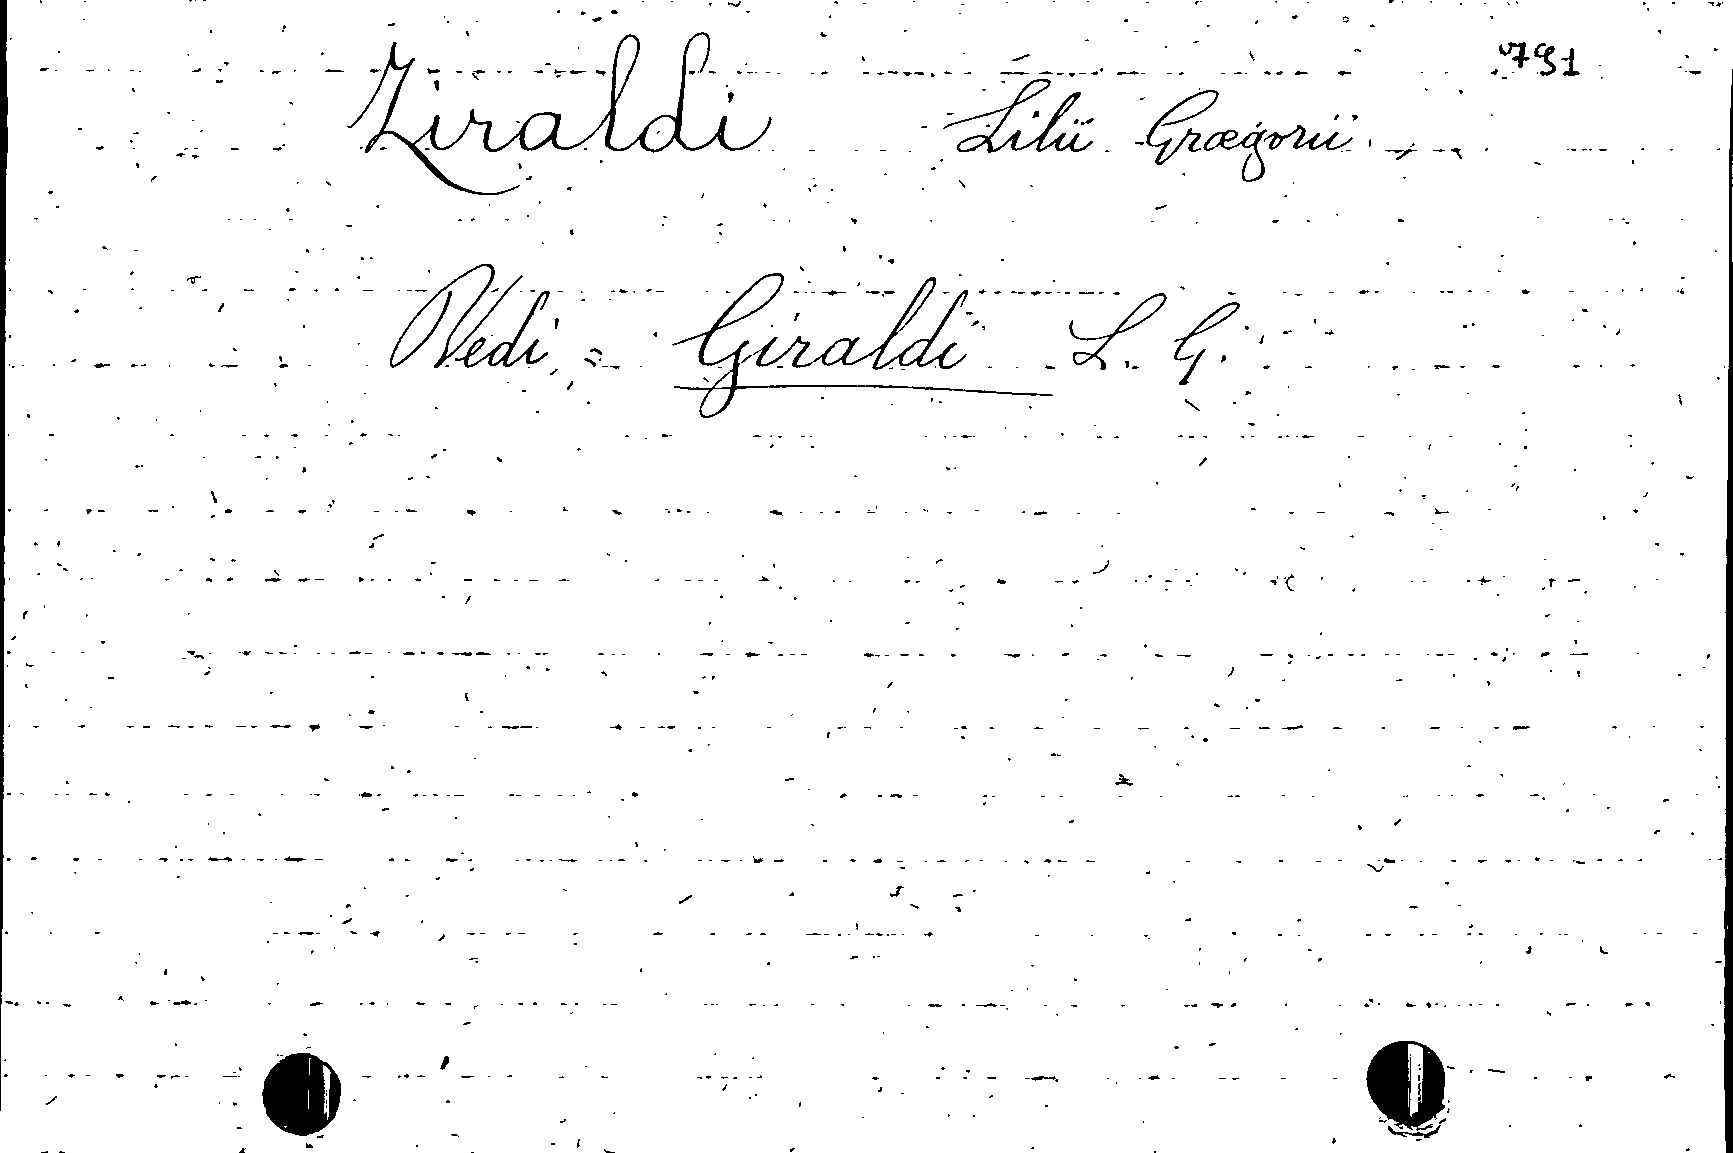 791
Ziraldi Lilii Graegorii
Vedi = Giraldi L. G.